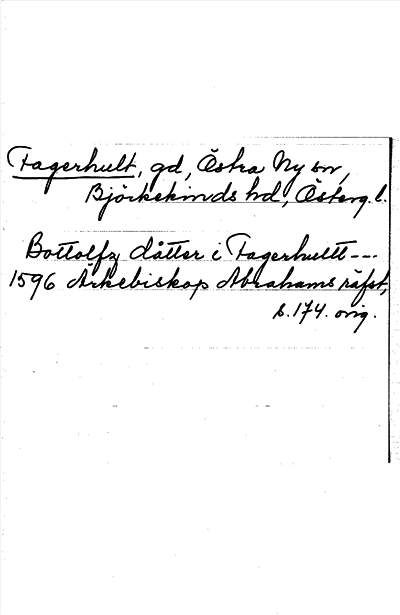 Fagerhult, gd, Östra Ny sn,
Björkekinds hd, Österg. l.
Bottolfz dåtter i Fagerhultt ---
1596 Ärkebiskop Abrahams räfst,
s. 174. orig.